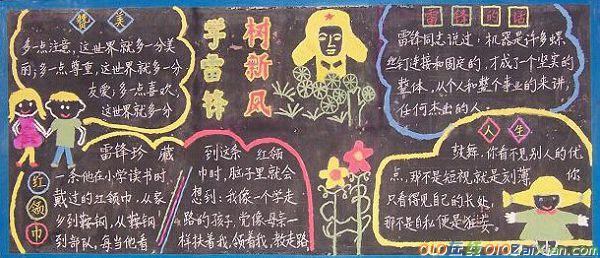 赞美
多一点注意，这世界就多一分美
丽；多一点尊重，这世界就多一分
友爱；多一点喜欢，
这世界就多一分
学雷锋
树新风
雷锋的话
雷锋同志说过，机器是许多螺
丝钉连接和固定的，才成了个坚实的
整体，从个人和整个事业的来讲，
任何杰出的人。
红领巾
雷锋珍藏
一条他在小学读书时
戴过的红领巾，从家
乡到鞍钢，从鞍钢
到部队，每当他看
到这条红领
巾时，脑子里就会
想到：我像一个学走
路的孩子，党像母亲一
样扶着我，领着我，教走路
人生
鼓舞，你看不见别人的优
点，那不是短视就是刻薄 你
只看得见自己的长处，
那不是自私便是狂妄。
OIO在线 OIOZaiXian.com